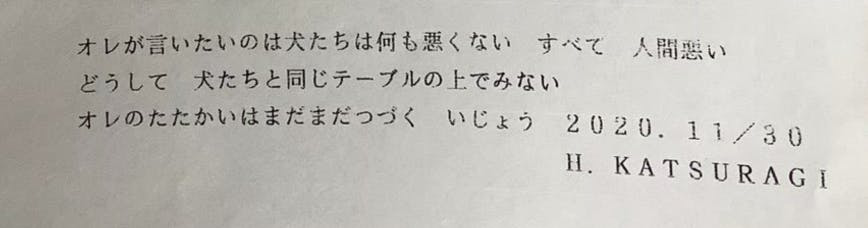 オレが言いたいのは犬たちは何も悪くない　すべて　人間悪い
どうして　犬たちと同じテーブルの上でみない
オレのたたかいはまだまだつづく　いじょう　２０２０．１１／３０
Ｈ．ＫＡＴＳＵＲＡＧＩ